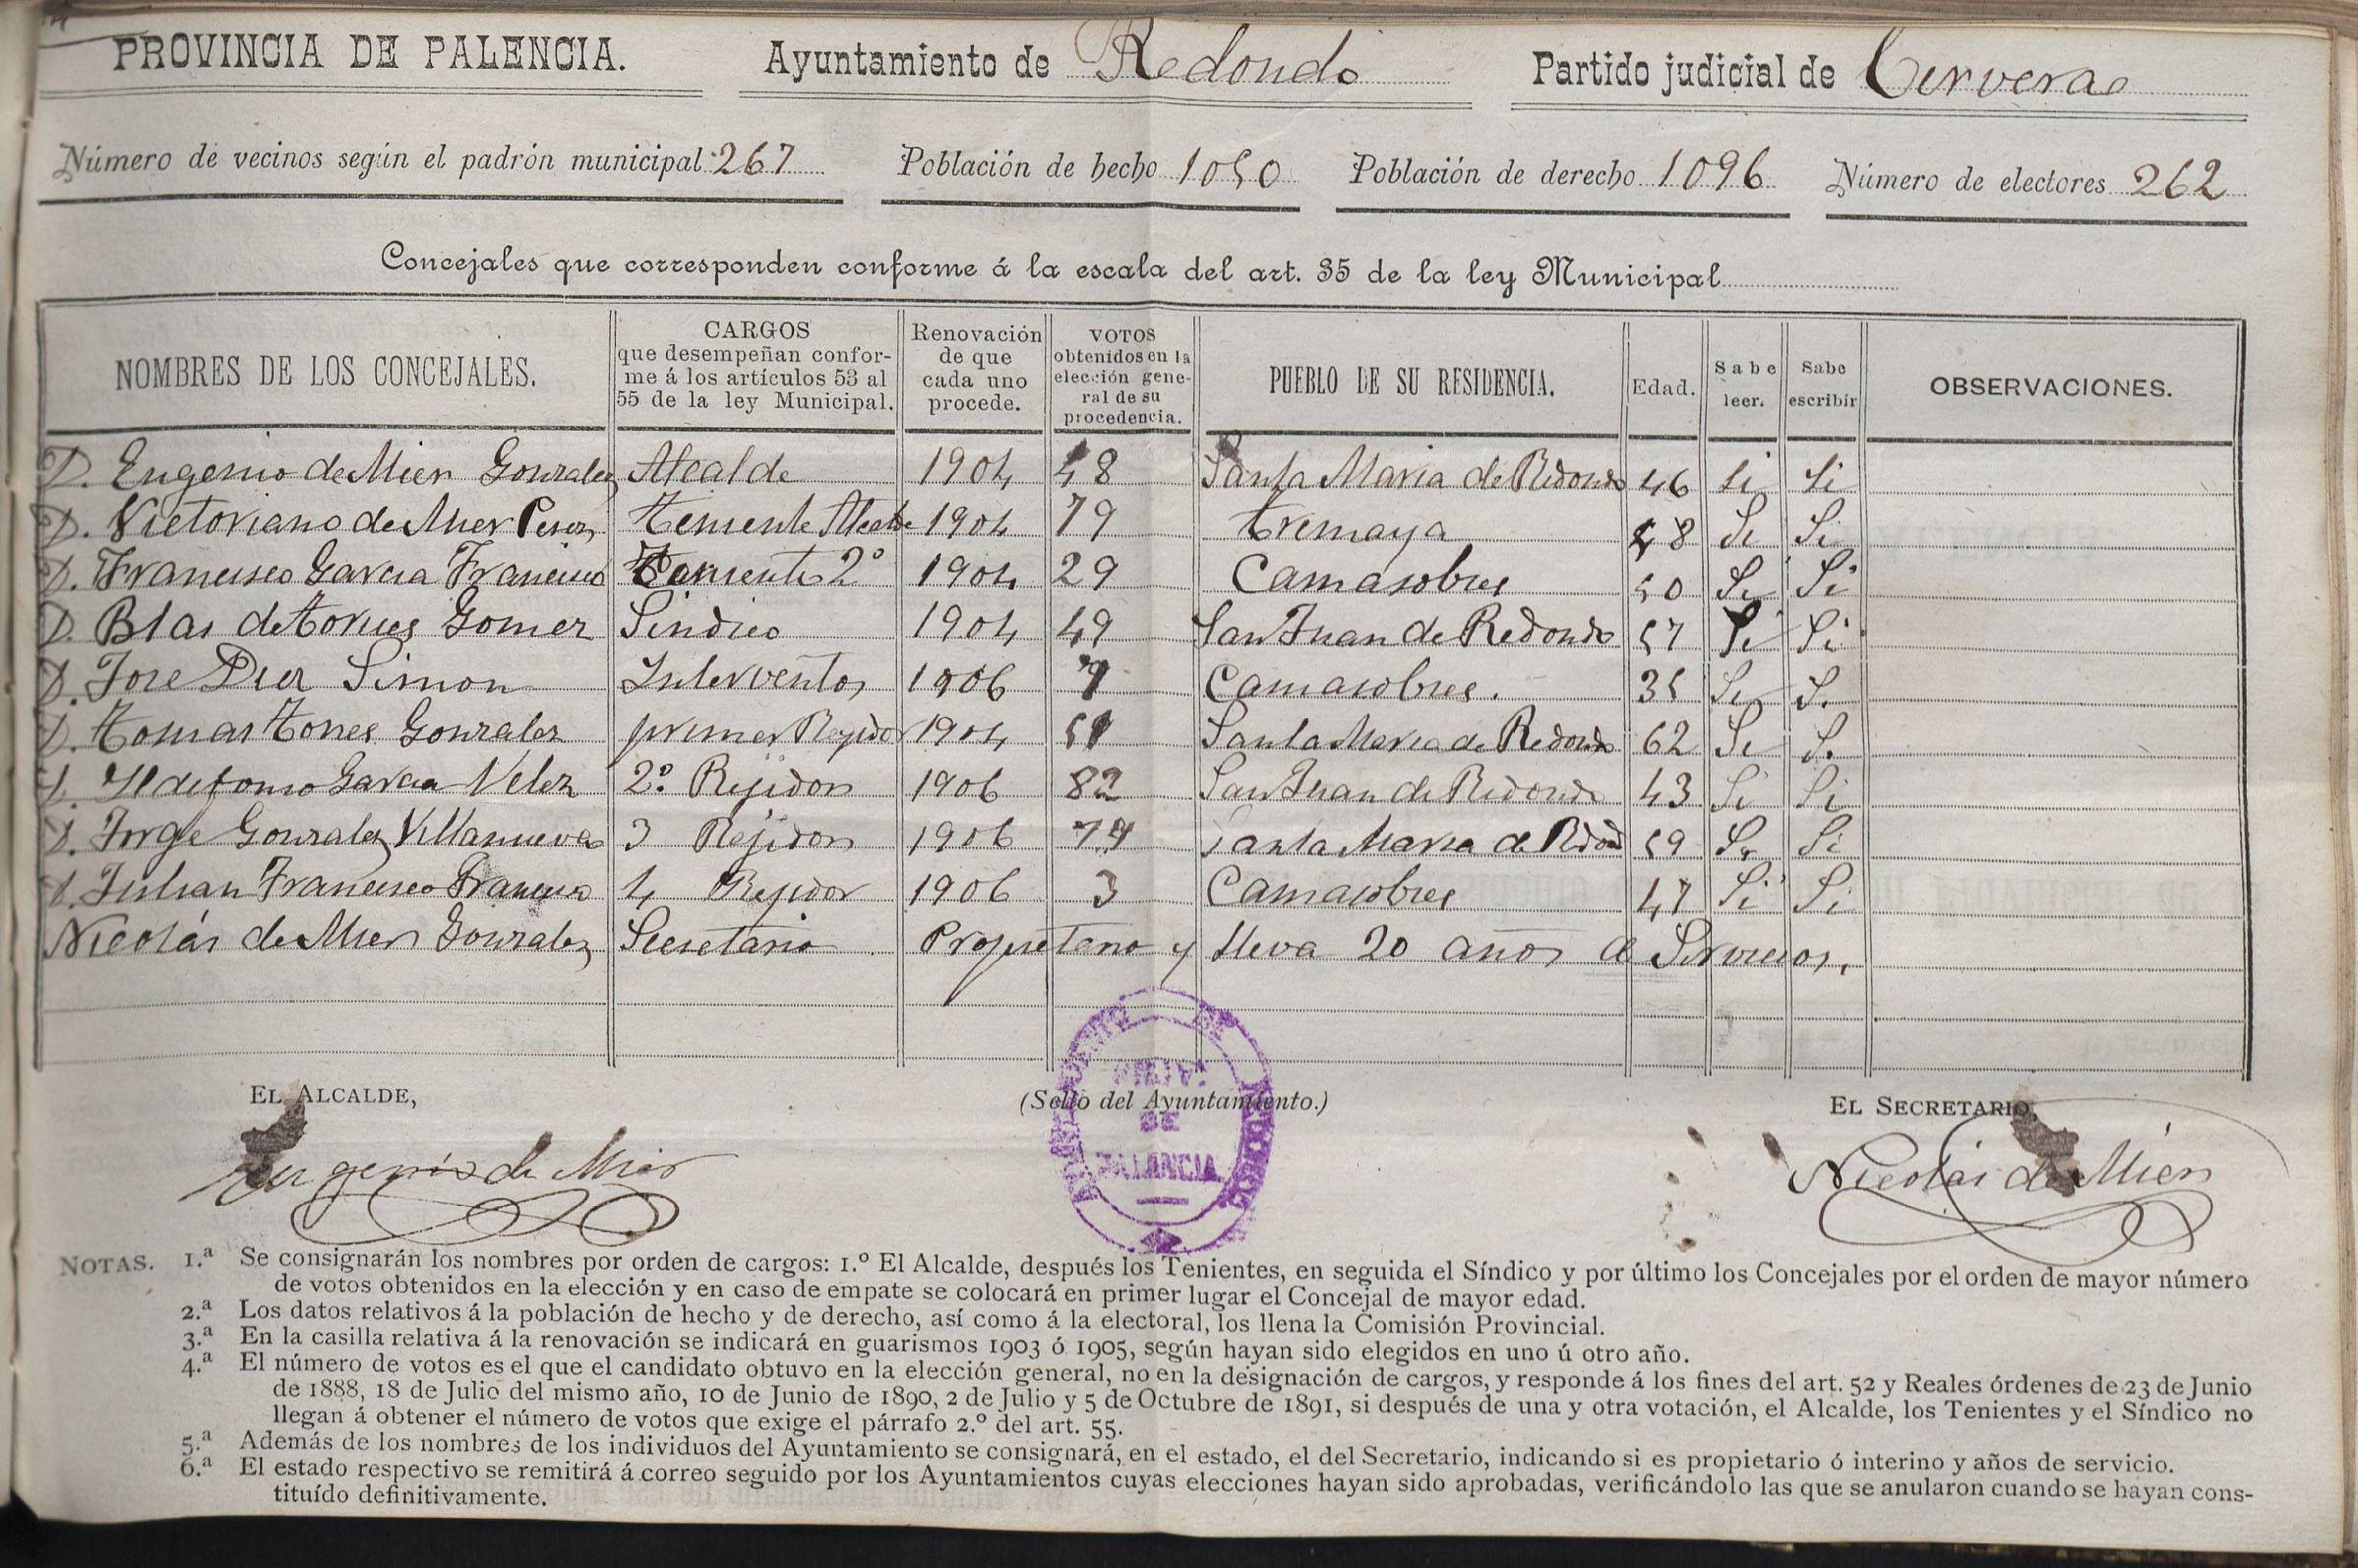 PROVINCIA DE PALENCIA. Ayuntamiento de Redondo Partido judicial de Cervera
Número de vecinos según el padrón municipal 267 Población de hecho 1050 Población de derecho 1096 Número de electores 262
Concejales que corresponden conforme á la escala del art. 35 de la ley Municipal
NOMBRES DE LOS CONCEJALES.
CARGOS
que desempeñan confor-
me á los artículos 53 al
55 de la ley Municipal.
Renovación
de que
cada uno
procede.
VOTOS
obtenidos en la
elección gene-
ral de su
procedencia.
PUEBLO DE SU RESIDENCIA.
Edad.
Sabe
leer.
Sabe
escribir
OBSERVACIONES.
D. Eugenio de Mier Gonzalez Alcalde 1904 48 Santa Maria de Redondo 46 Si Si
D. Victoriano de Mier Perez Teniente Alcalde 1904 79 Tremaya 48 Si Si
D. Francisco Garcia Francisco Teniente 2º 1904 29 Camasobres 50 Si Si
D. Blas de Torres Gomez Sindico 1904 49 San Juan de Redondo 57 Si Si
D. Jose Diez Simon Interventor 1906 Camasobres. 35 Si Si
D. Tomas Torres Gonzalez primer Regidor 1904 51 Santa Maria de Redondo 62 Si Si
D. Ildefonso Garcia Velez 2.º Rejidor 1906 82 San Juan de Redondo 43 Si Si
D. Jorge Gonzalez Villanueva 3 Rejidor 1906 Santa Maria de Redond 59 Si Si
D. Julian Francisco Francisco 4 Rejidor 1906 3 Camasobres 47 Si Si
Nicolás de Mier Gonzalez Secretario Propietario y lleva 20 años de Servicios.
EL ALCALDE, (Sello del Ayuntamiento.) EL SECRETARIO,
AYUNTAMIENTO DE REDONDO
PROVA.
DE
PALENCIA
Eugenio de Mier Nicolás de Mier
NOTAS. 1.ª Se consignarán los nombres por orden de cargos: 1.º El Alcalde, después los Tenientes, en seguida el Síndico y por último los Concejales por el orden de mayor número
de votos obtenidos en la elección y en caso de empate se colocará en primer lugar el Concejal de mayor edad.
2.ª Los datos relativos á la población de hecho y de derecho, así como á la electoral, los llena la Comisión Provincial.
3.ª En la casilla relativa á la renovación se indicará en guarismos 1903 ó 1905, según hayan sido elegidos en uno ú otro año.
4.ª El número de votos es el que el candidato obtuvo en la elección general, no en la designación de cargos, y responde á los fines del art. 52 y Reales órdenes de 23 de Junio
de 1888, 18 de Julio del mismo año, 10 de Junio de 1890, 2 de Julio y 5 de Octubre de 1891, si después de una y otra votación, el Alcalde, los Tenientes y el Síndico no
llegan á obtener el número de votos que exige el párrafo 2.º del art. 55.
5.ª Además de los nombres de los individuos del Ayuntamiento se consignará, en el estado, el del Secretario, indicando si es propietario ó interino y años de servicio.
6.ª El estado respectivo se remitirá á correo seguido por los Ayuntamientos cuyas elecciones hayan sido aprobadas, verificándolo las que se anularon cuando se hayan cons-
tituído definitivamente.